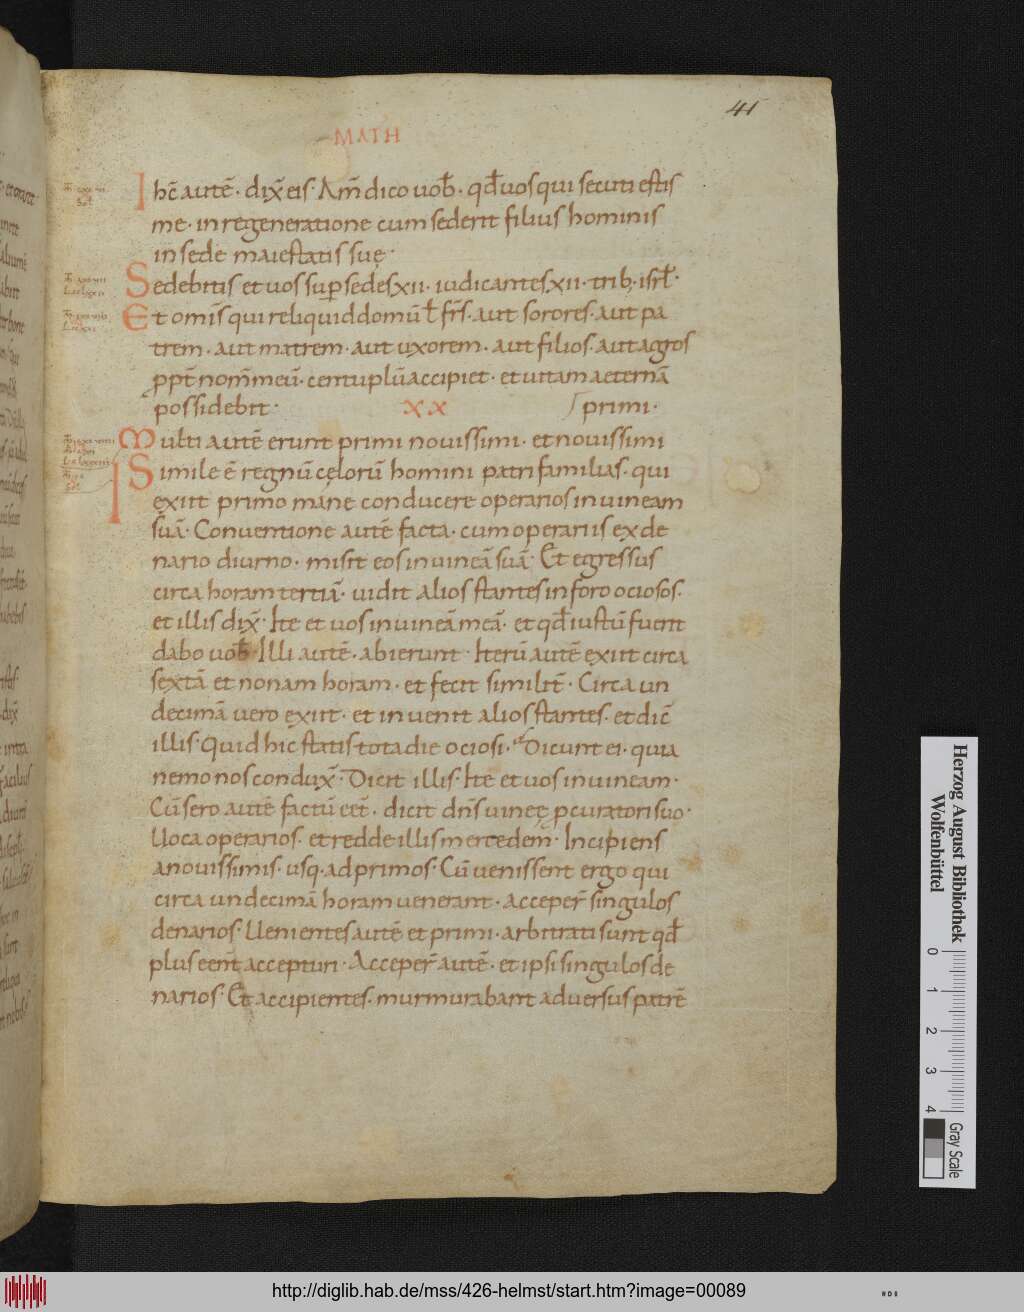 41
MATH
Ihc̄ autē. dix̄ eis. Am̄ dico uob̄. qd̄ uos qui secuti estis
me. in regeneratione cum sederit filius hominis
in sede maiestatis suę.
Sedebitis et uos sup̄ sedes xii. iudicantes xii. trib; isrl̄.
Et omīs qui reliquid domū ł fr̄s. aut sorores. aut pa
trem. aut matrem. aut uxorem. aut filios. aut agros
ppt̄ nom̄ meū. centuplū accipiet. et uitam aeternā
possidebit.
xx
primi.
Multi autē erunt primi nouissimi. et nouissimi
Simile ē regnū cęlorū homini patri familias. qui
exiit primo mane conducere operarios in uineam
suā. Conuentione autē facta. cum operariis ex de
nario diurno. misit eos in uineā suā. Et egressus
circa horam tertiā. uidit alios stantes in foro ociosos.
et illis dix̄. Ite et uos in uineā meā. et qd̄ iustū fuerit
dabo uob̄. Illi autē. abierunt. Iterū autē exiit circa
sextā et nonam horam. et fecit similit̄. Circa un
decimā uero exiit. et inuenit alios stantes. et dic̄
illis. quid hic statis tota die ociosi. Dicunt ei. quia
nemo nos condux̄. Dicit illis. Ite et uos in uineam.
Cū sero autē factū eēt. dicit dn̄s uineę pcuratori suo.
Uoca operarios. et redde illis mercedem. Incipiens
a nouissimis. usq. ad primos. Cū uenissent ergo qui
circa undecimā horam uenerant. acceper̄ singulos
denarios. Uenientes autē et primi. arbitrati sunt qd̄
plus eent̄ accepturi. Acceper̄ autē. et ipsi singulos de
narios. Et accipientes. murmurabant aduersus patrē
Herzog August Bibliothek
Wolfenbüttel
0 1 2 3 4
Gray Scale
http://diglib.hab.de/mss/426-helmst/start.htm?image=00089